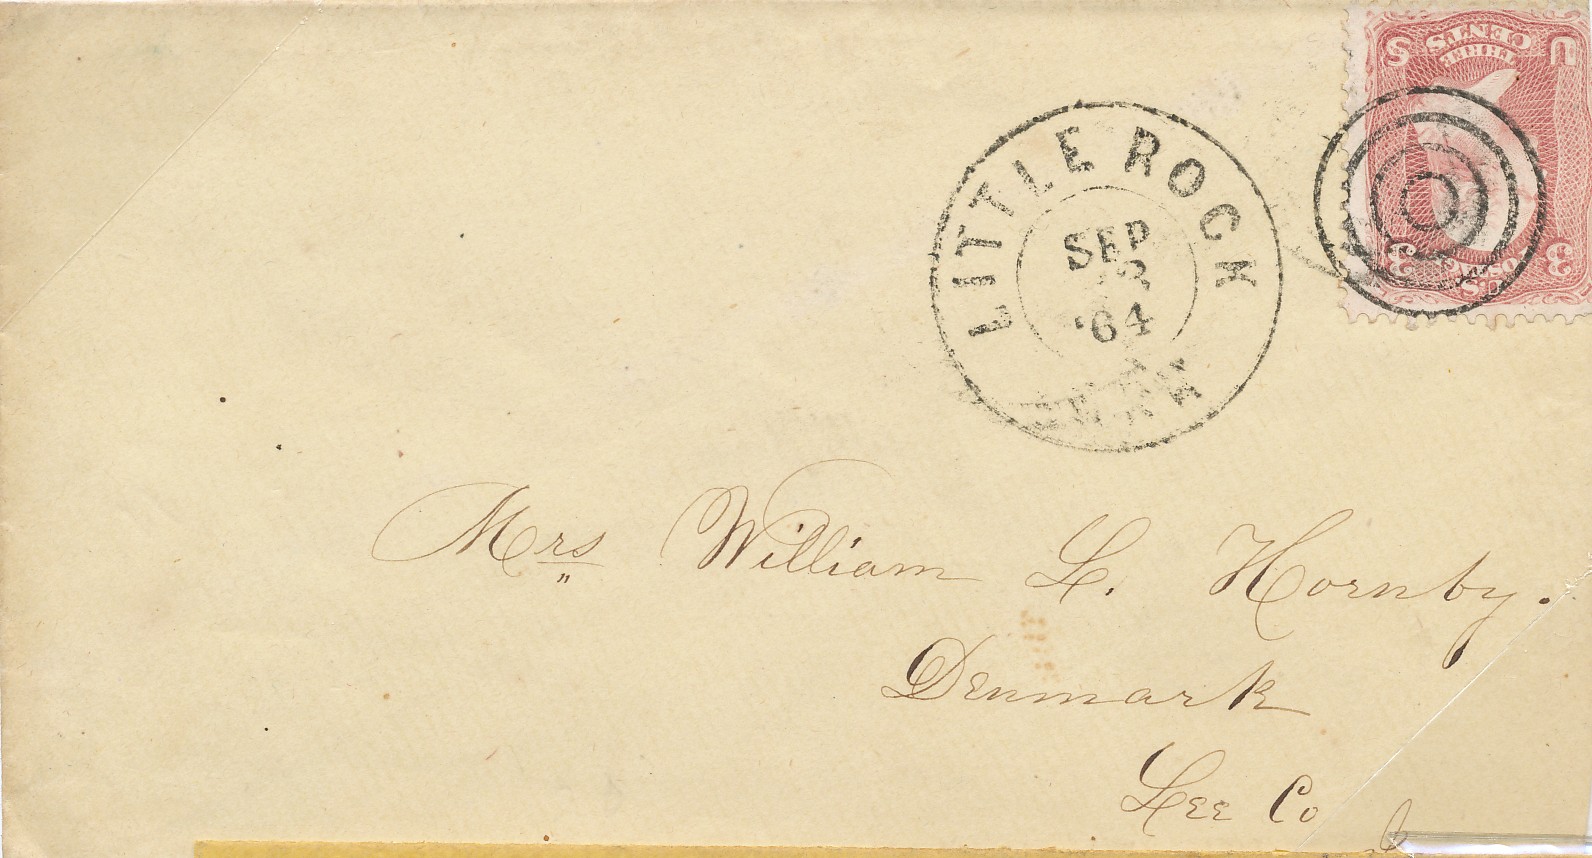 U S
THREE
CENTS
U.S. POSTAGE
3 3
LITTLE ROCK
SEP
'64
ARK
Mrs William L. Hornby.
Denmark
Lee Co